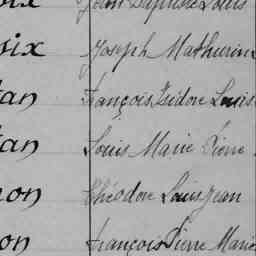 Jean Baptiste Louis
six Joseph Mathurin
an François Isidore Louis
an Louis Marie Pierre
non Théodore Louis Jean
on François Pierre Marie